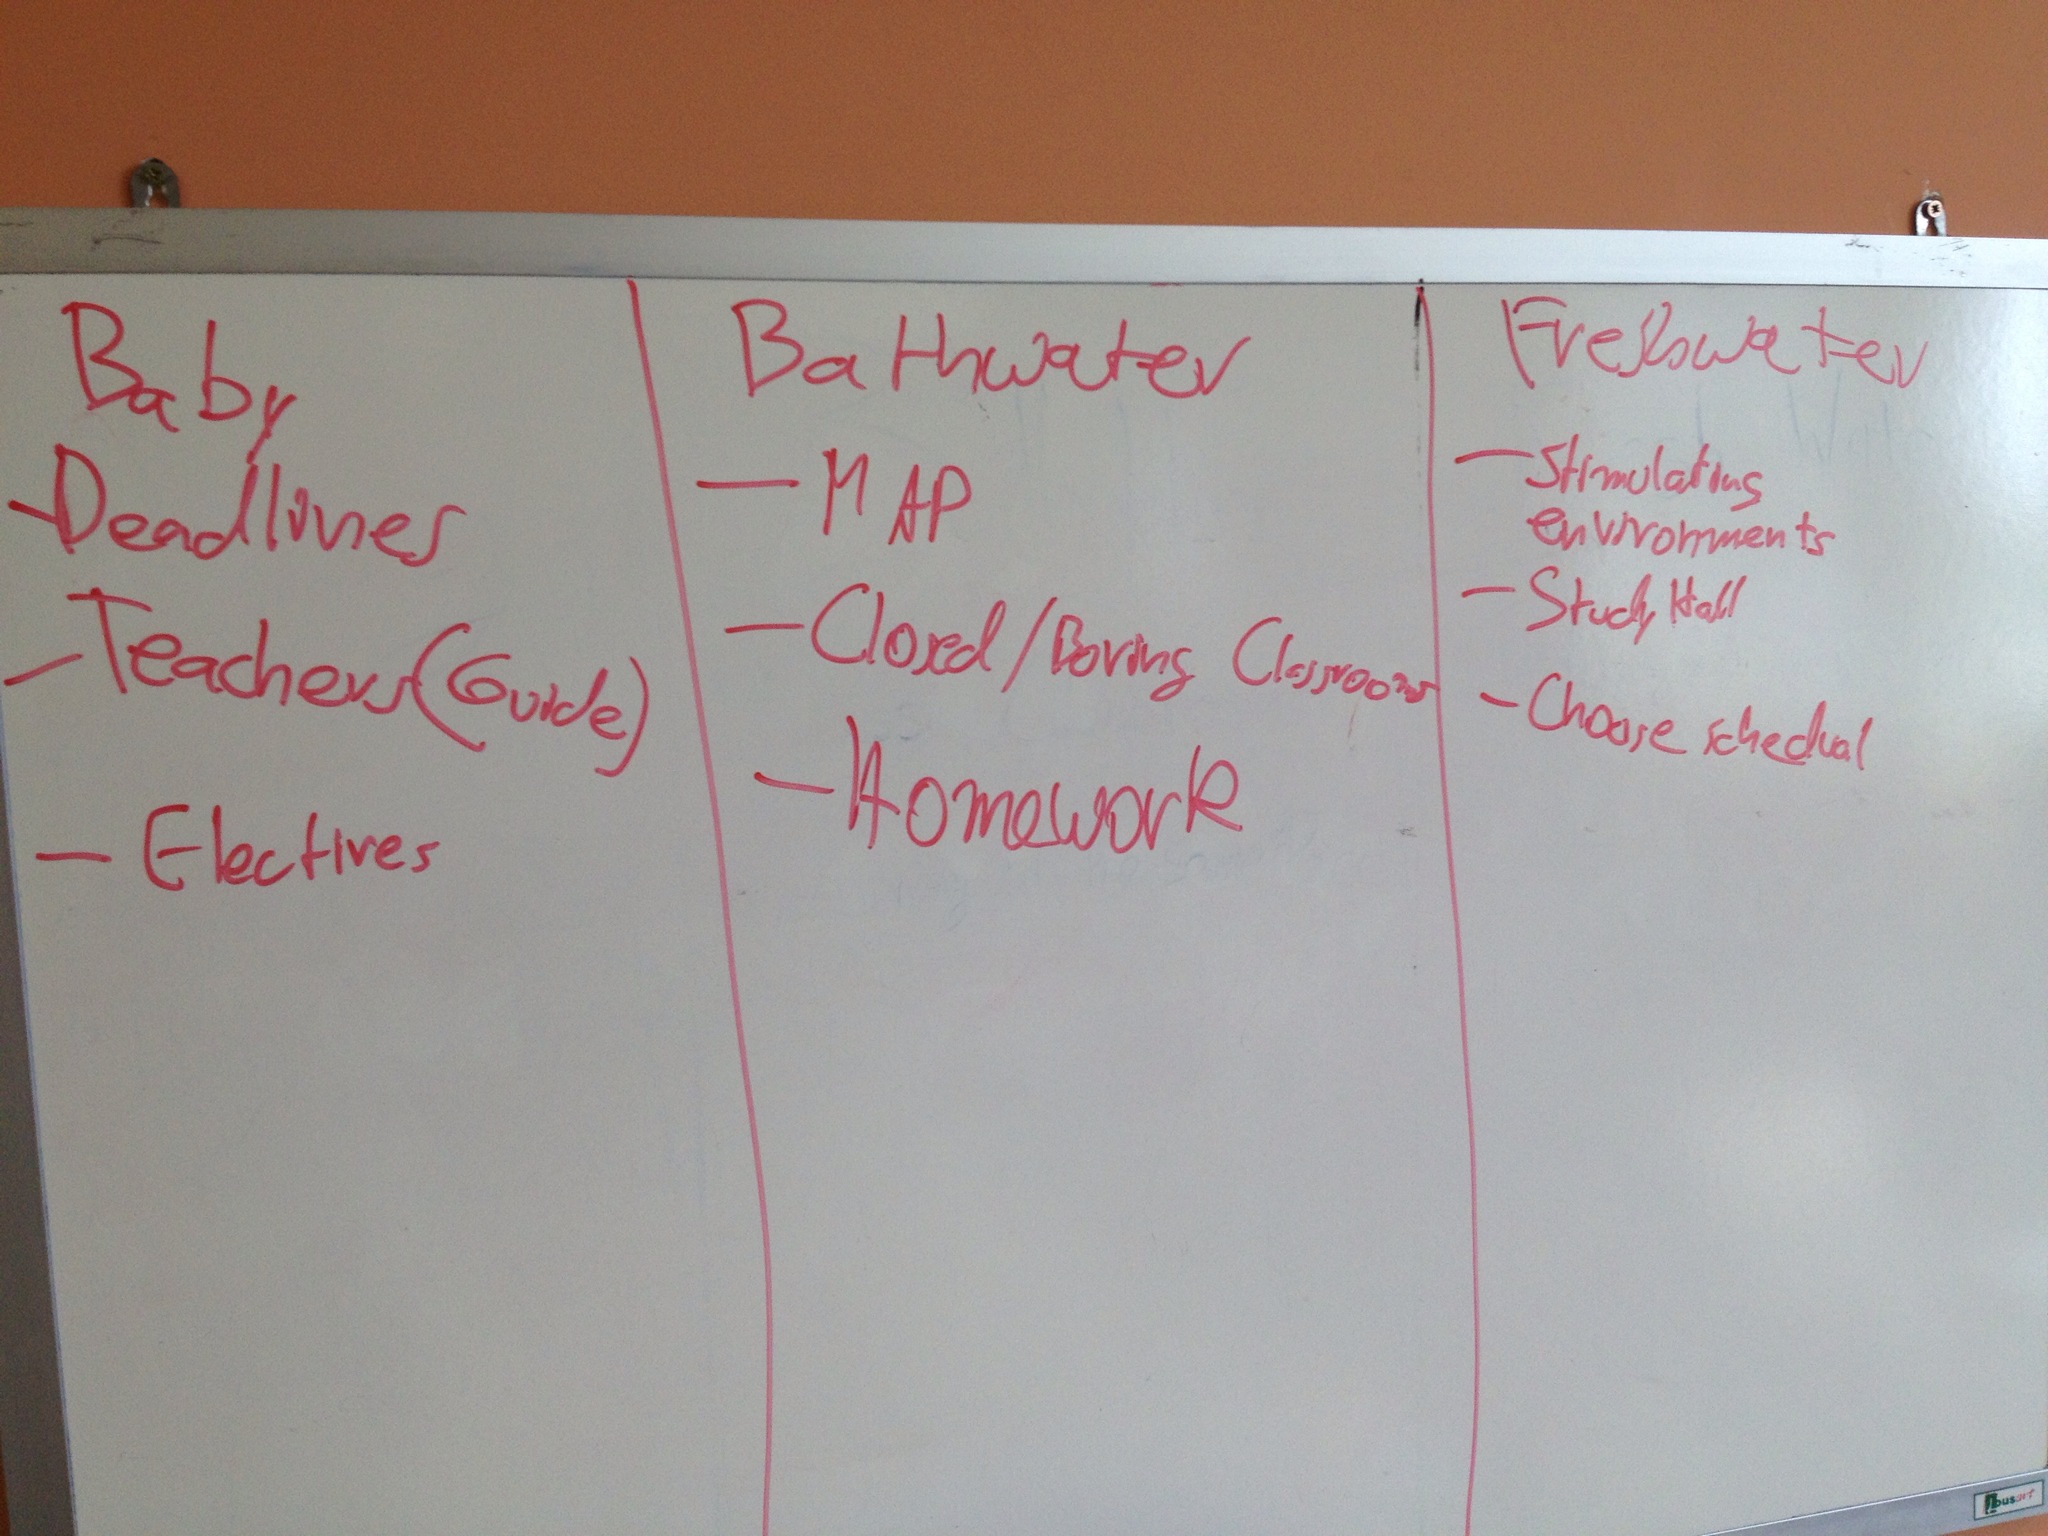 Baby
- Deadlines
- Teachers (Guide)
- Electives
Bathwater
- MAP
- Closed/Boring Classrooms
- Homework
Freshwater
- Stimulating
environments
- Study Hall
- Choose schedual